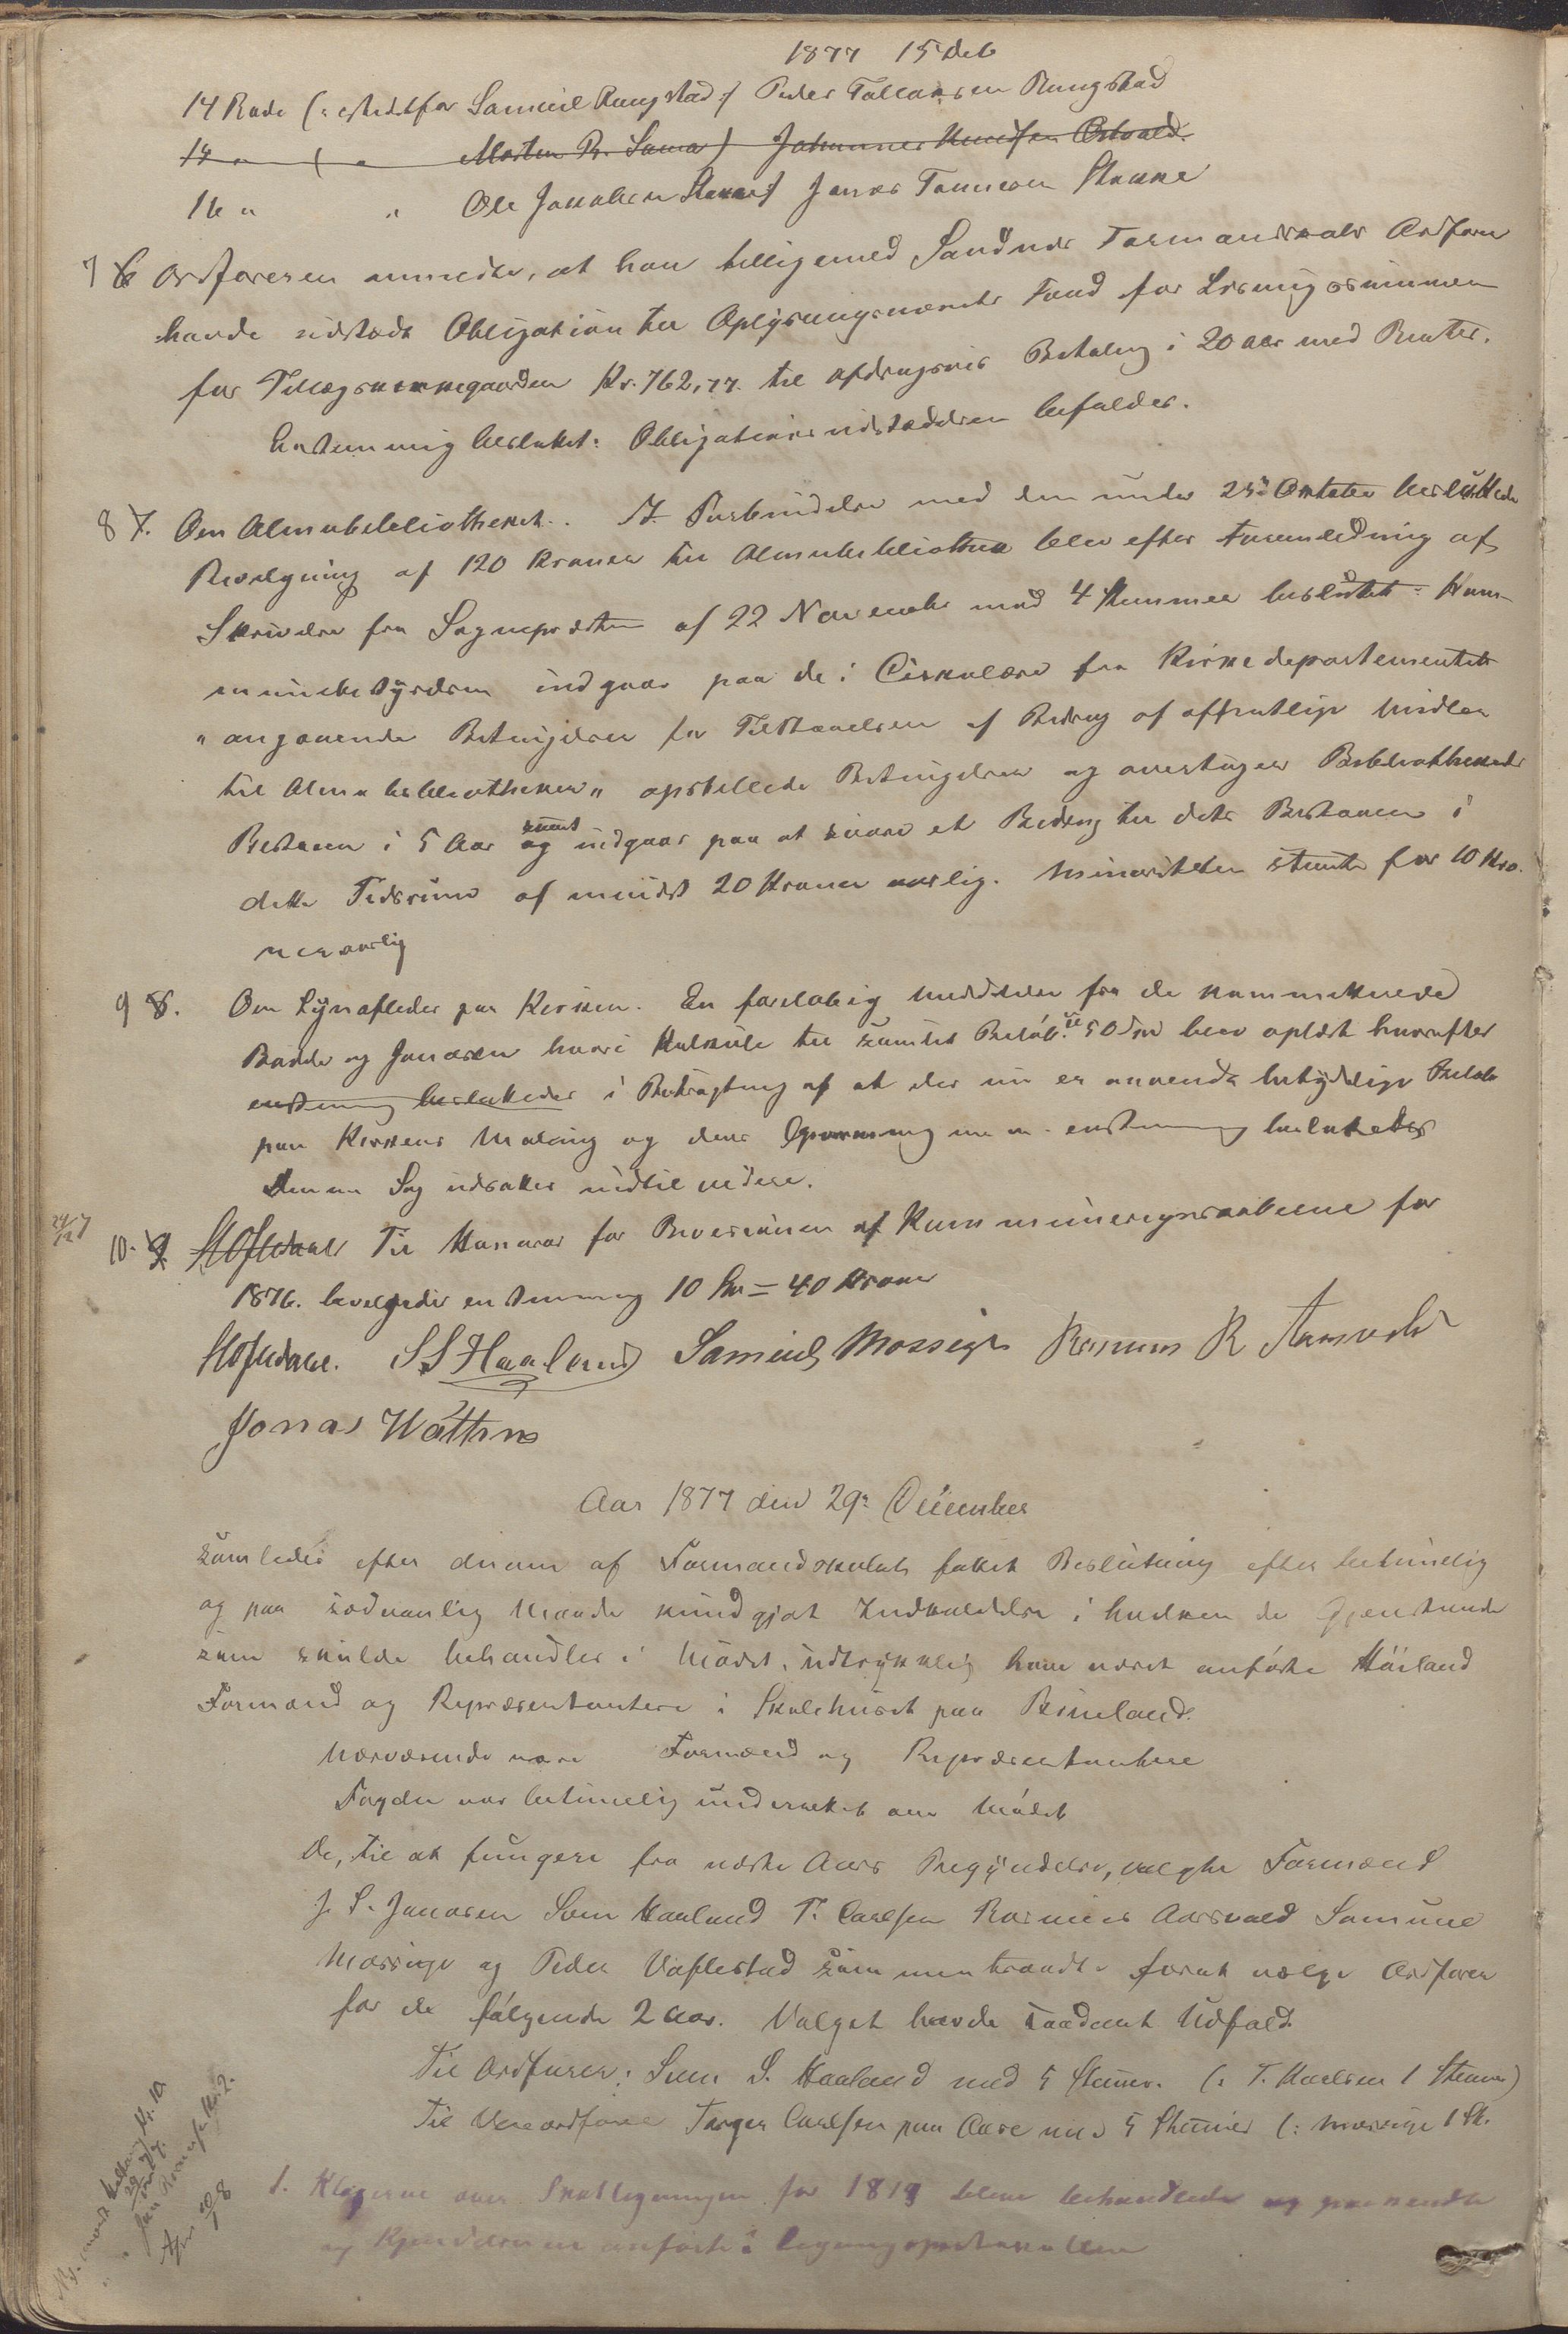 1877 15 Deb
14 Rode (: istedetfor Samuel Rugstad :) Peder Tollaksen Rugstad
14 " ( " Morten B. Soma) Johannes Knudsen Østvold.
16 " " Ole Jakobsen Stokke) Jonas Tønnesen Stokke
7 6 Ordføreren anmeldte, at han tilligemed Sandnes Formandskabs Ordfører
havde udstædt Obligation til Oplysningsvæsenets Fond for Løsningssummen
for Tillægskirkegaarden Kr. 762,77 til afdragsvis Betaling i 20 Aar med Renter.
Enstemmig besluttet: Obligationsudstædelsen bifaldes.
8 7. Om Almuebibliotheket. I Forbindelse med den under 25de Oktober besluttede
Bevilgning af 120 Kroner til Almuebibliothek blev efter Foranledning af
Skrivelse fra Sognepræsten af 22 November med 4 Stemmer besluttet: Kom-
munebestyrelsen indgaar paa de i Cirkulære fra Kirkedepartementet
"angaaende Betingelser for Tilstaaelsen af Bidrag af offentlige Midler
til Almuebibliotheker" opstillede Betingelser og overtager Bibliothekets
Bestaaen i 5 Aar og samt indgaar paa at svare et Bidrag til dets Bestaaen i
dette Tidsrum af mindst 20 Kroner aarlig. Minoriteten stemte for 10 Kro-
ner aarlig
9 8. Om Lynafleder paa Kirken. En foreløbig Meddelelse fra de kommitterede
Budde og Jonassen hvori Kalkule til samlet Beløb: 50 Spd blev oplæst hvorefter
enstemmig besluttedes i Betragtning af at der nu er anvendt betydelige Beløb
paa Kirkens Maling og dens Opvarmning m. m. enstemmig besluttedes
Denne Sag udsættes indtil videre.
24/12 7
10. 9 Til Honorar for Revisionen af Kommuneregnskaberne for
1876. bevilgedes enstemmig 10 Spd = 40 Kroner
S S Haaland Samuel Mossige Rasmus R Aarsvold
Jonas Watten
Aar 1877 den 29de December
samledes efter denne af Formandskabet fattet Beslutning efter betimelig
og paa sedvanlig Maade kundgjort Indkaldelse i hvilken de Gjenstande
som skulde behandles i Mødet, udtrykkelig have været anførte Høiland
Formænd og Repræsentantere i Skolehuset paa Bruneland.
Nærværende vare Formænd og Repræsentantere
Fogden var betimelig underrettet om Mødet
De, til at fungere fra næste Aars Begyndelse, valgte Formænd
J. S. Jonasen Sven Haaland T. Carlsen Rasmus Aarsvold Samuel
Mossige og Peder Vaflestad sammentraadte forat vælge Ordfører
for de følgende 2 Aar. Valget havde saadant Udfald.
Til Ordfører: Sven S. Haaland med 5 Stemer. (: T. Karlsen 1 Stemme)
Til Viceordfører Torger Carlsen paa Aase med 5 Stemmer (: Mossige 1 St.
1. Klagerne over Skatligningen for 1878 bleve behandlede og paakjendte
og Kjendelserne anførte i Ligningsprotokollen